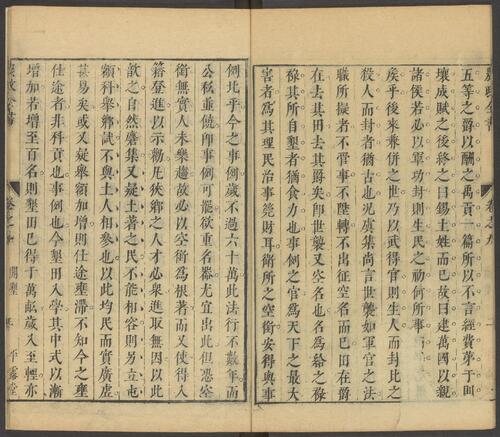 農政全書 卷之九
五等之爵以酬之禹貢一篇所以不言經費苐于則
壤成賦之後終之曰錫土姓而已故曰建萬國以親
諸侯若必以軍功封則生民之初何所事
矣乎後來兼併之世乃以武得官則生人而封比之
殺人而封者猶古也况虞集尚言世襲如軍官之法
職所擬者不管事不陞轉不出征空名而已田在爵
在去其田去其爵矣即世襲又空名也名爲給之
祿其所自墾者猶食力也事例之官爲天下之最大
害者爲其理民治事筦財耳衛所之空銜安得與事
例比乎今之事例歲不過六十萬此法行不數年而
公私並饒即事例可罷欲重名器尤宜出此但恐空
銜無實人未樂趨故必以空銜爲根著而又使得入
籍登進以示勸凡狹鄉之人才必衆進取無因以此
歆之自然麕集又疑土著之民不能相容則另立屯
額科舉鄉試不與土人相參也以此均民而實廣虛
甚易矣或又疑舉額加增則仕途壅滯不知今之壅
仕途者非科貢也事例也今墾田入學其中式以漸
增加若增至百名則墾田已得千萬畝歲入至輕亦
農政全書 卷之九 開墾 平露堂